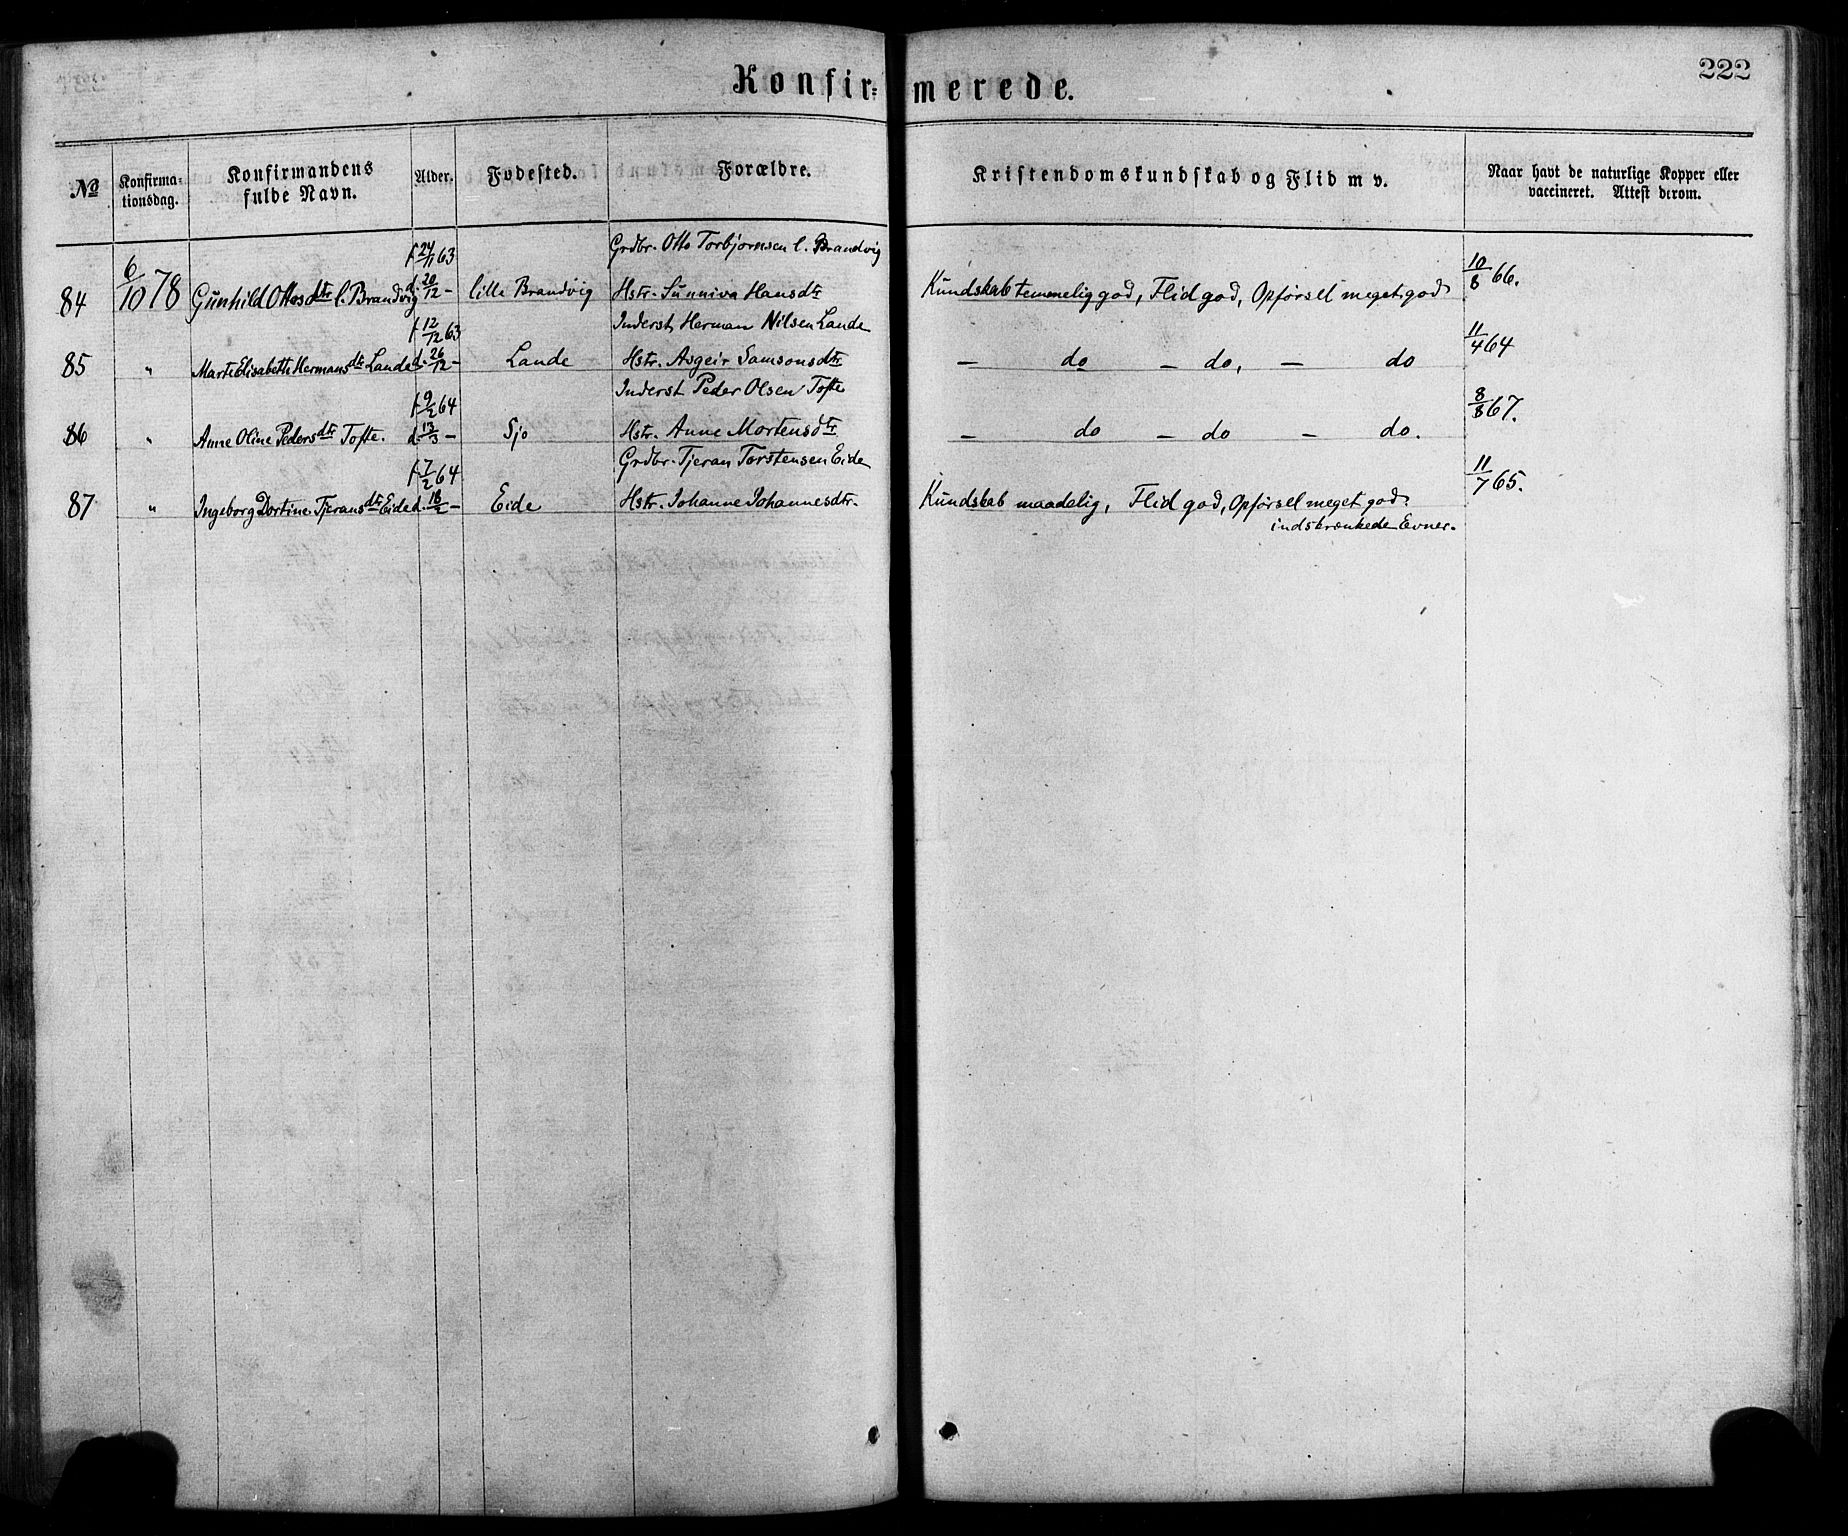 222
Konfir=merede.
No
Konfirma-
tionsdag.
Konfirmandens
fulde Navn.
Alder.
Fødested.
Forældre.
Kristendomskundskab og Flid m v.
Naar havt de naturlige Kopper eller
vaccineret. Attest derom.
f. 24/11 63 Grdbr. Otto Torbjørnsen l. Brandvig
84 6/10 78 Gunhild Ottosdtr l. Brandvig d. 20/12 - lille Brandvig Hstr. Sunniva Hansdtr Kundskab temmelig god, Flid god, Opførsel meget god 10/8 66.
f. 12/12 63 Inderst Herman Nilsen Lande
85 " Marte Elisabeth Hermansdtr Lande d. 26/12 - Lande Hstr. Asgeir Samsonsdtr - do - do, - do 11/4 64
f. 9/2 64 Inderst Peder Olsen Tofte
86 " Anne Oline Pedersdtr Tofte. d. 13/3 - Sjo Hstr. Anne Mortensdtr - do - do - do. 8/8 67.
f. 7/2 64 Grdbr. Tjeran Torstensen Eide
87 " Ingeborg Dortine Tjeransdtr Eide d. 18/2 - Eide Hstr. Johanne Johannesdtr. Kundskab maadelig, Flid god, Opførsel meget god. 11/7 65.
indskrænkede Evner.